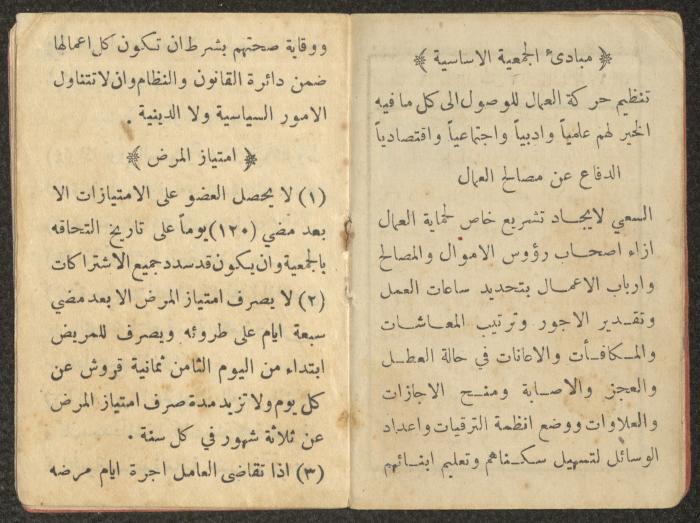 ﴿ مبادئ الجمعية الاساسية ﴾
تنظيم حركة العمال للوصول الى كل ما فيه
الخير لهم علمياً وادبياً واجتماعياً واقتصادياً
الدفاع عن مصالح العمال
السعي لايجـاد تشريع خاص لحماية العمال
ازاء اصحـاب رؤوس الاموال والمصالح
وارباب الاعمـال بتحديد ساعات العمل
وتقـدير الاجور وترتيب المعـاشـات
والمـكافـأت والاعانات في حالة العطـل
والعجز والاصـابة ومنـح الاجازات
والعلاوات ووضع انظمة الترقيات واعداد
الوسائل لتسهيل سكـناهم وتعليم ابنـائهم
ووقاية صحتهم بشرط ان تكون كل اعمالها
ضمن دائرة القانون والنظام وان لا تتناول
الامور السياسية ولا الدينية .
﴿ امتياز المرض ﴾
(١) لا يحصل العضو على الامتيازات الا
بعد مضي (١٢٠) يوماً على تاريخ التحاقه
بالجمعية وان يكون قد سدد جميع الاشتراكات
(٢) لا يصرف امتياز المرض الا بعد مضي
سبعة ايام على طروئه ويصرف للمريض
ابتداء من اليوم الثامن ثمانية قروش عن
كل يوم ولا تزيد مدة صرف امتياز المرض
عن ثلاثة شهور في كل سنة .
(٣) اذا تقاضى العامل اجرة ايام مرضه